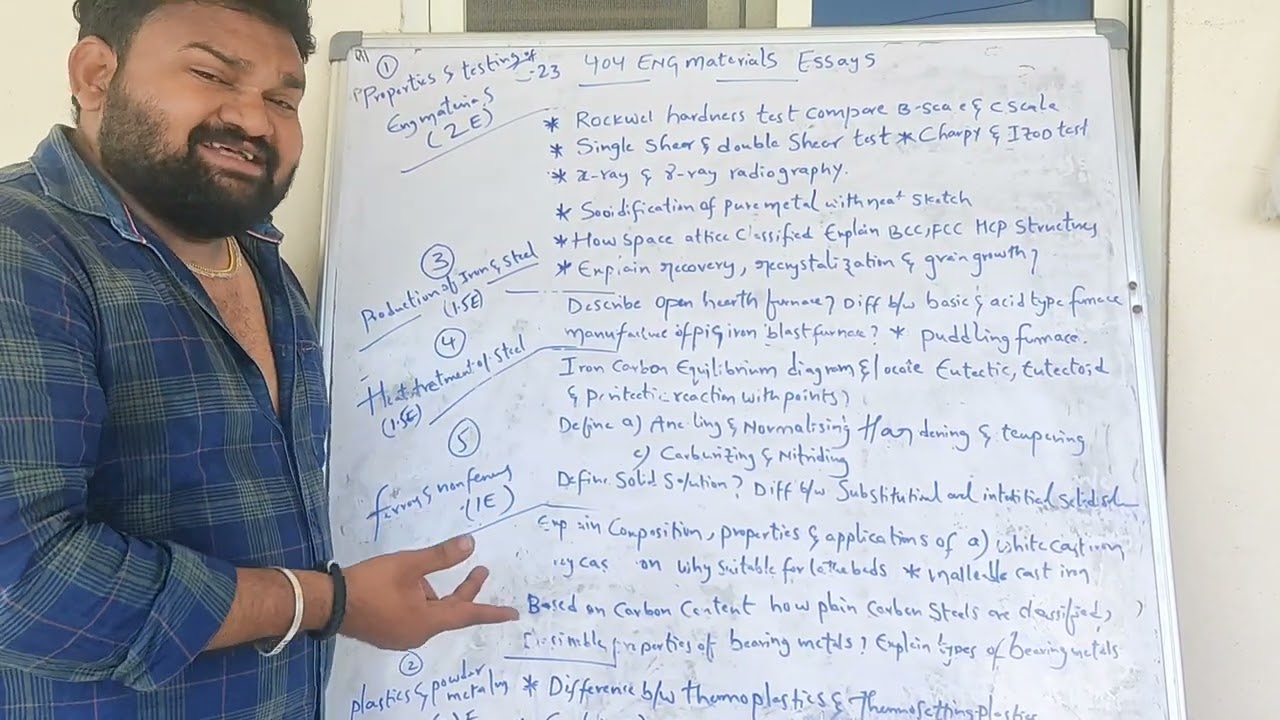 404 ENG materials Essays
①
Properties & testing of
Eng materials
(2E)
* Rockwel hardness test compare B-scale & C scale
* Single Shear & double Shear test * Charpy & IZOD test
* x-ray & γ-ray radiography.
* Sooidification of pure metal with neat sketch
* How space attice Classified Explain BCC, FCC HCP Structures
* Explain recovery, recrystalization & grain growth?
③
Production of Iron & Steel
(1.5E)
Describe open hearth furnace? Diff b/w basic & acid type furnace
manufacture of pig iron blast furnace? * puddling furnace.
④
Heat tretment of Steel
(1.5E)
Iron Carbon Equilibrium diagram & locate Eutectic, Eutectoid
& Peritectic reaction with points?
Define a) Ane ling & Normalising Har dening & tempering
c) Carburizing & Nitriding
Define Solid Solution? Diff b/w Substitutional and
⑤
ferrous & non ferrous
(1E)
Exp ain Composition, properties & applications of a) white cast iron
ey cas on why suitable for lathe beds * malleable cast iron
Based on Carbon Content how plain Carbon Steels are classified?
properties of bearing metals? Explain types of bearing metals
②
plastics & powder
* Difference b/w thermoplastics & Thermosetting plastics